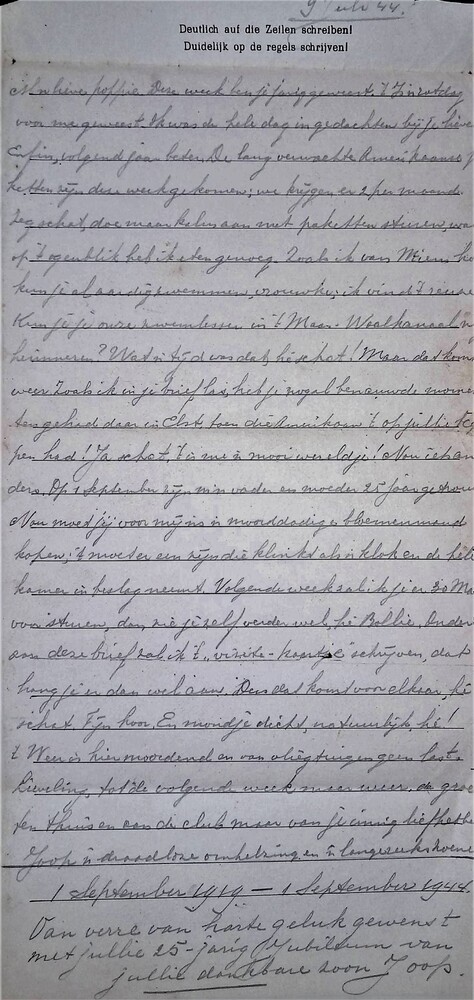 9 Juli 44.
Deutlich auf die Zeilen schreiben!
Duidelijk op de regels schrijven!
M'n lieve poppie. Deze week ben je jarig geweest. 't Is 'n rotdag
voor me geweest. Ik was de hele dag in gedachten bij je lieve
Enfin, volgend jaar beter. De lang verwachte Amerikaanse
ketten zijn deze week gekomen; we krijgen er 2 per maand.
Zeg schat, doe maar kalm aan met paketten sturen, want
op 't ogenblik heb ik eten genoeg. Zoals ik van Miem
kun je al aardig zwemmen, vrouwke; ik vind 't reuze
Kun je je onze zwemlessen in 't Maas-Waalkanaal
herinneren? Wat 'n tijd was dat, hè schat! Maar dat komt
weer. Zoals ik in je brief las, heb je nogal benauwde momen-
ten gehad daar in Elst, toen die Amerikaan 't op jullie
pen had! Ja schat, 't is me 'n mooi wereldje! Nou iets an-
ders. Op 1 September zijn m'n vader en moeder 25 jaar getrouwd
Nou moet jij voor mij 'n moorddadige bloemenmand
kopen; 't moet er een zijn die klinkt als 'n klok en de hele
kamer in beslag neemt. Volgende week zal ik je er 30 Mark
voor sturen, dan zie je zelf verder wel, hè Bollie. Onder-
aan deze brief zal ik 't „visite-kaartje" schrijven, dat
hang je er dan wel aan. Dus dat komt voor elkaar, hè
schat. Fijn hoor. En mondje dicht, natuurlijk, hè!
't Weer is hier moordend en van vliegtuigen geen last.
Lieveling, tot de volgende week maar weer, de groe-
ten thuis en aan de club maar van je innig liefheb
Joop 'n draadloze omhelzing en 'n lange
1 September 1919 – 1 September 1944.
Van verre van harte geluk gewenst
met jullie 25-jarig Jubileum van
jullie dankbare zoon Joop.